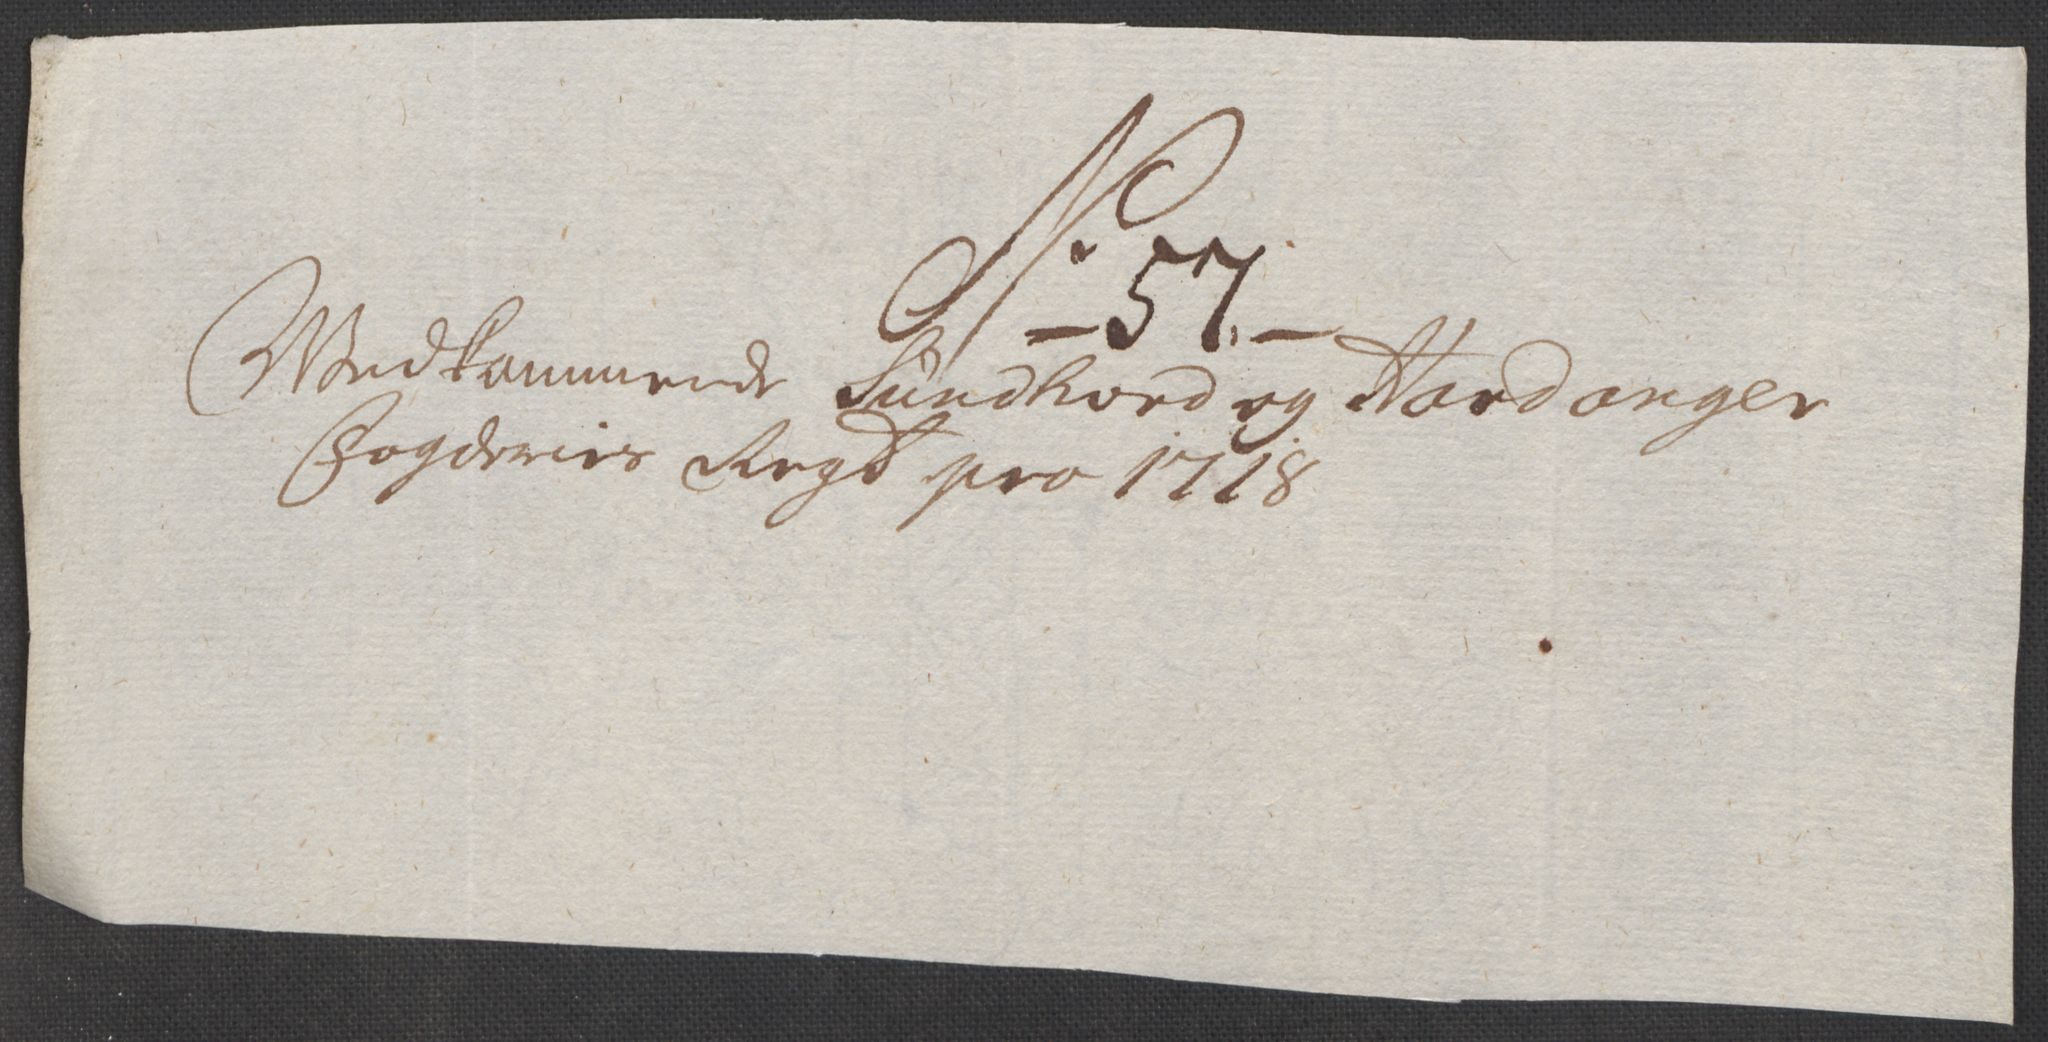 No
- 57. -
Wedkommende Sundhord og Hardanger
Fogderies Regt pro 1718